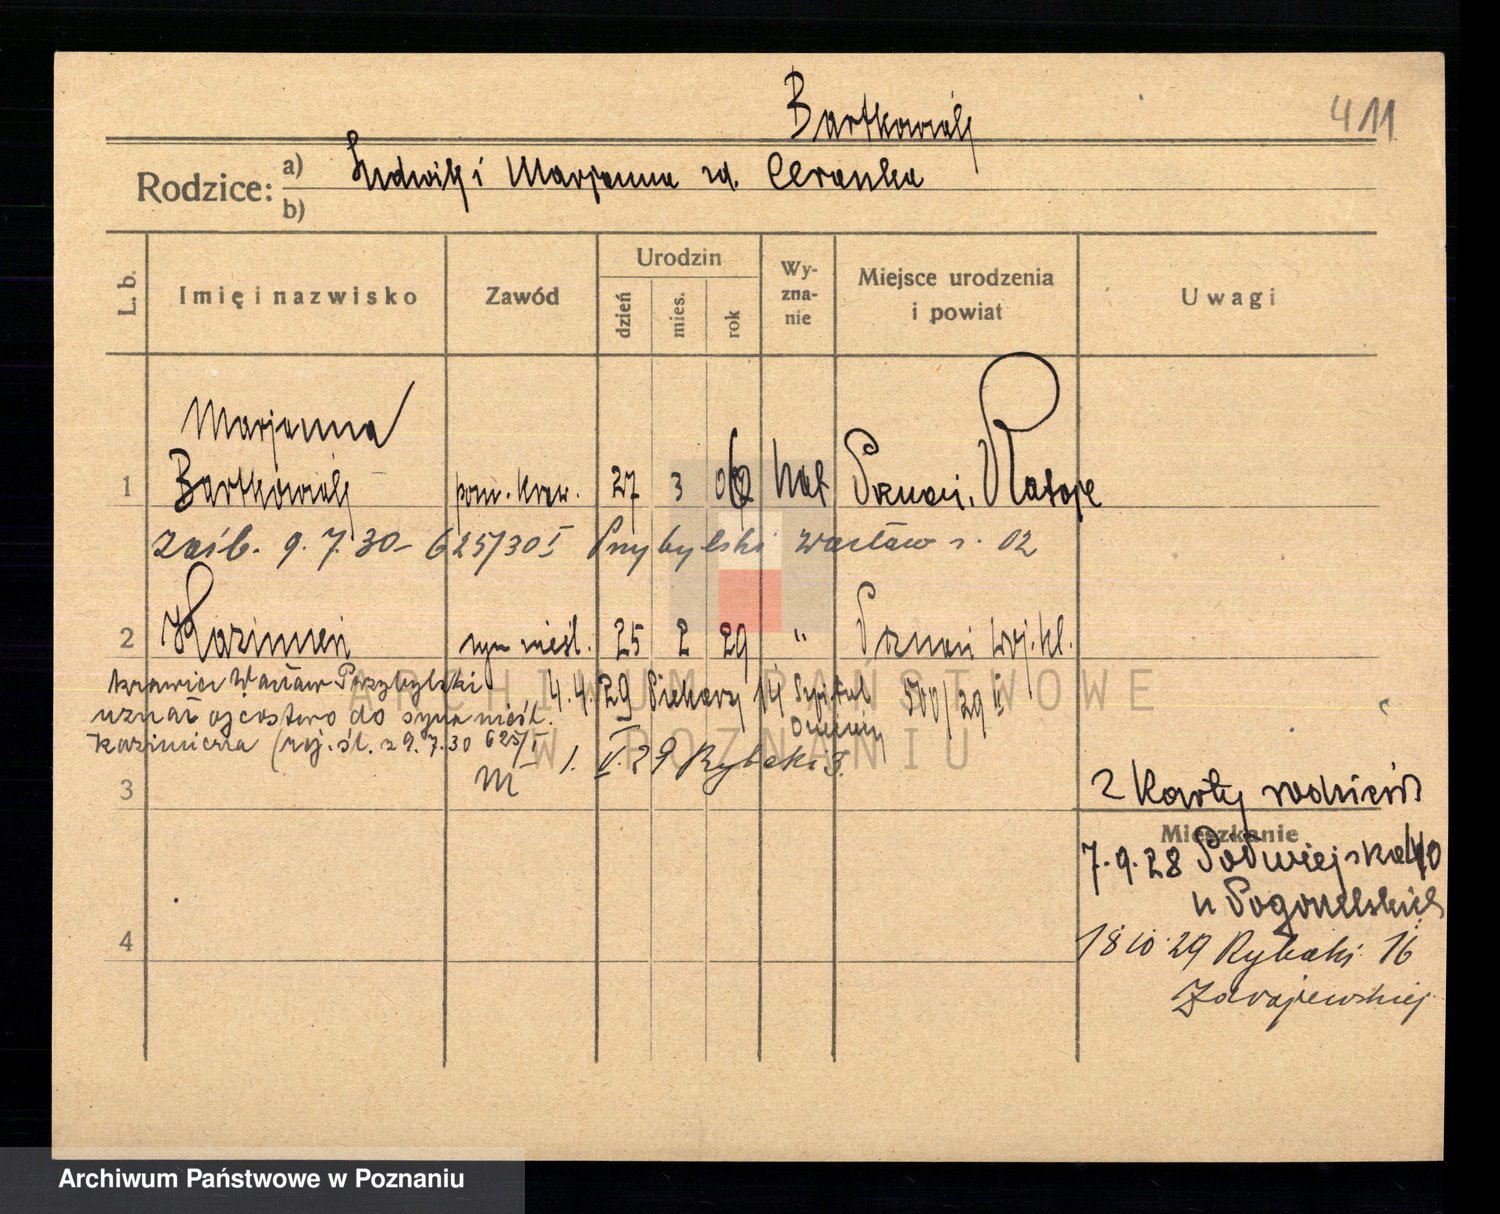 Bartkowiak
411
Rodzice: a) Ludwik i Marjanna zd. Ceranka
b)
L. b.
Imię i nazwisko
Zawód
Urodzin
dzień
mies.
rok
Wy-
zna-
nie
Miejsce urodzenia
i powiat
Uwagi
Marjanna
1 Bartkowiak 27 3 kat Poznań, Rataje
zaśb. 9. 7. 30 - 625/30 I Przybylski Wacław r. 02
2 Kazimierz syn nieśl. 25 2 29 " Poznań woj. kl.
krawiec Wacław Przybylski 4. 4. 29 Piekary 14 Szpital 500/29 II
uznał ojcostwo do syna nieśl.
Kazimierza (roj. śl. z 9. 7. 30 625/I 1. V. 29 Rybaki 3.
3
z karty rodziców
Mieszkanie
7. 9. 28 Podwiejska 40
u Pogonelskich
4
18 10 29 Rybaki 16
Zdrojewskiej
ARCHIWUM PAŃSTWOWE
W POZNANIU
Archiwum Państwowe w Poznaniu